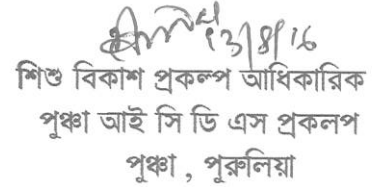 13/8/16
শিশু বিকাশ প্রকল্প আধিকারিক
পুঞ্চা আই সি ডি এস প্রকলপ
পুঞ্চা , পুরুলিয়া